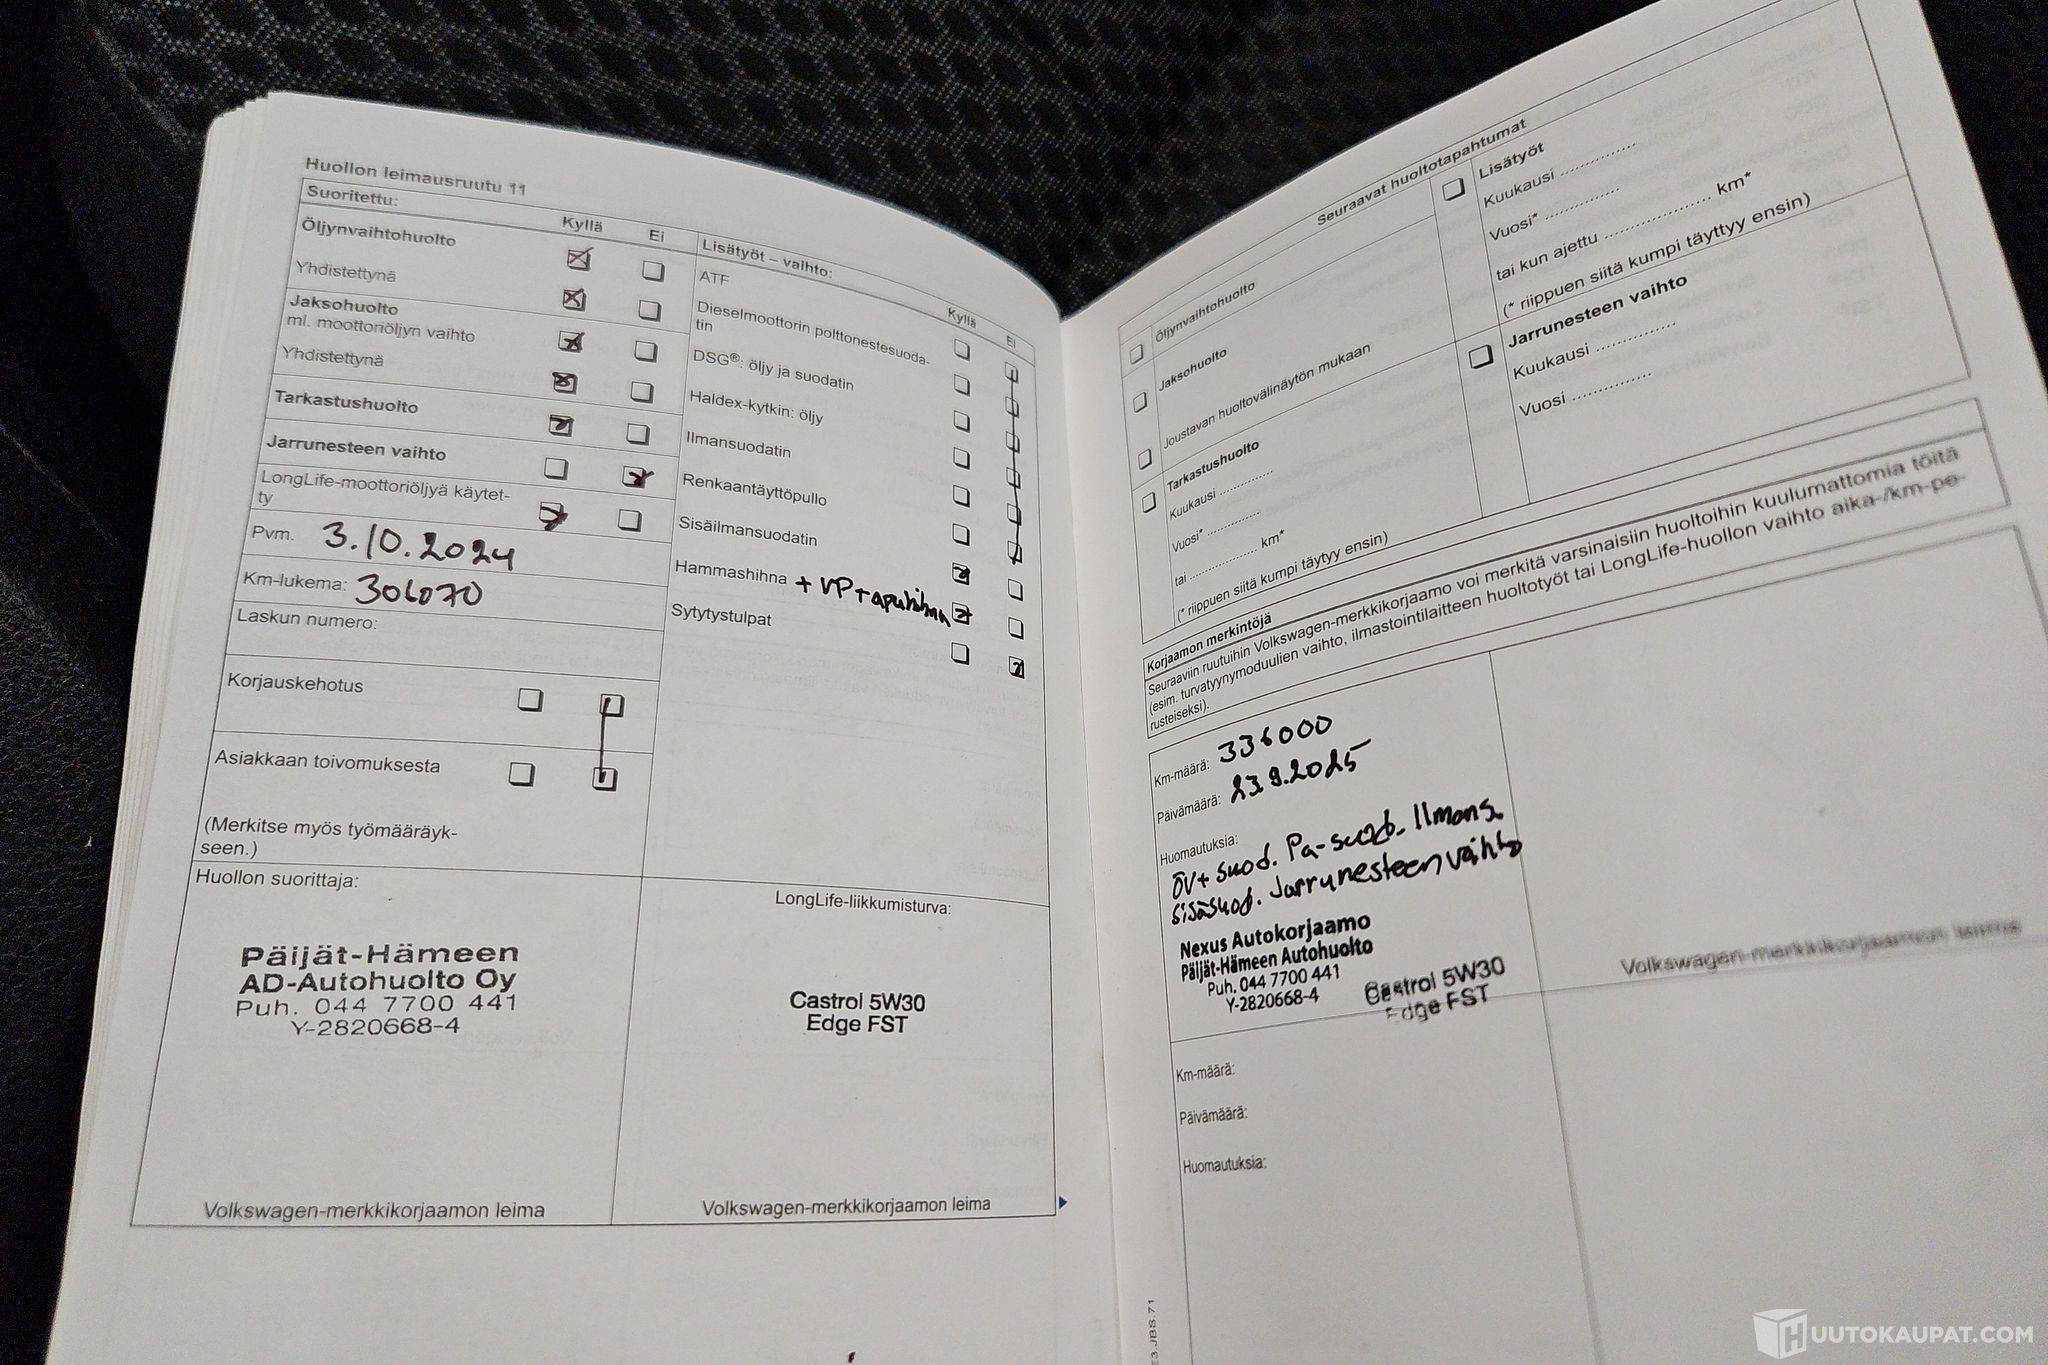 Huollon leimausruutu 11
Suoritettu:
Kyllä
Ei
Öljynvaihtohuolto
Yhdistettynä
Jaksohuolto
ml. moottoriöljyn vaihto
Yhdistettynä
Tarkastushuolto
Jarrunesteen vaihto
LongLife-moottoriöljyä käytet-
ty
Pvm. 3.10.2024
Km-lukema: 306070
Laskun numero:
Korjauskehotus
Asiakkaan toivomuksesta
(Merkitse myös työmääräyk-
seen.)
Lisätyöt – vaihto:
Kyllä
Ei
ATF
Dieselmoottorin polttonestesuoda-
tin
DSG®: öljy ja suodatin
Haldex-kytkin: öljy
Ilmansuodatin
Renkaantäyttöpullo
Sisäilmansuodatin
Hammashihna + VP + apuhihna
Sytytystulpat
Huollon suorittaja:
Päijät-Hämeen
AD-Autohuolto Oy
Puh. 044 7700 441
Y-2820668-4
Volkswagen-merkkikorjaamon leima
LongLife-liikkumisturva:
Castrol 5W30
Edge FST
Volkswagen-merkkikorjaamon leima
Seuraavat huoltotapahtumat
Öljynvaihtohuolto
Jaksohuolto
Joustavan huoltovälinäytön mukaan
Tarkastushuolto
Kuukausi ..............
Vuosi* ..............
tai .............. km*
(* riippuen siitä kumpi täytyy ensin)
Lisätyöt
Kuukausi ..............
Vuosi* ..............
tai kun ajettu .................... km*
(* riippuen siitä kumpi täyttyy ensin)
Jarrunesteen vaihto
Kuukausi ..............
Vuosi ..............
Korjaamon merkintöjä
Seuraaviin ruutuihin Volkswagen-merkkikorjaamo voi merkitä varsinaisiin huoltoihin kuulumattomia töitä
(esim. turvatyynymoduulien vaihto, ilmastointilaitteen huoltotyöt tai LongLife-huollon vaihto aika-/km-pe-
rusteiseksi).
Km-määrä: 336000
Päivämäärä: 23.9.2025
Huomautuksia:
öv+ suod. Pa-suod. Ilmans.
sisäsuod. Jarrunesteen vaihto
Nexus Autokorjaamo
Päijät-Hämeen Autohuolto
Puh. 044 7700 441
Y-2820668-4
Castrol 5W30
Edge FST
Volkswagen-merkkikorjaamon leima
Km-määrä:
Päivämäärä:
Huomautuksia:
E3.JBS.71
HUUTOKAUPAT.COM